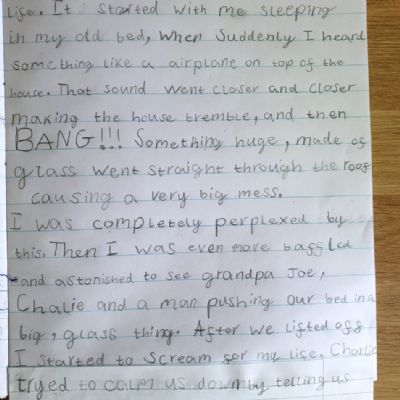 life. It started with me sleeping
in my old bed, when suddenly I heard
something like a airplane on top of the
house. That sound went closer and closer
making the house tremble, and then
BANG!!! Something huge, made of
glass went straight through the roof
causing a very big mess.
I was completely perplexed by
this. Then I was even more baffled
and astonished to see grandpa Joe,
Chalie and a man pushing our bed in a
big, glass thing. After we lifted off
I started to scream for my life. Charlie
tryed to calm us down by telling us